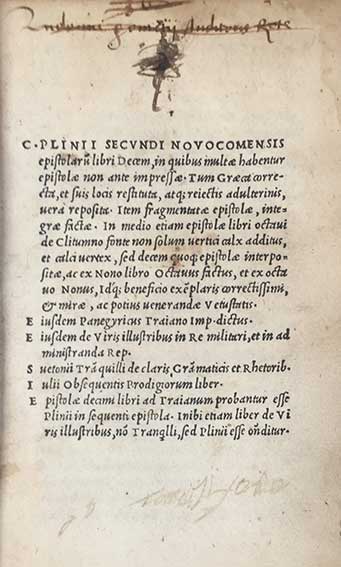 C. PLINII SECVNDI NOVOCOMENSIS
epistolarũ libri Decem, in quibus multæ habentur
epistolæ non ante impressæ. Tum Græca corre-
cta, et suis locis restituta, atq; reiectis adulterinis,
uera reposita. Item fragmentatæ epistolæ, inte-
græ factæ. In medio etiam epistolæ libri octaui
de Clitumno fonte non solum uertici calx additus,
et calci uertex, sed decem quoq; epistolæ interpo-
sitæ, ac ex Nono libro Octauus factus, et ex octa
uo Nonus, Idq; beneficio exẽplaris correctissimi,
et miræ, ac potius uenerandæ Vetustatis.
E iusdem Panegyricus Traiano Imp. dictus.
E iusdem de Viris illustribus in Re militari, et in ad
ministranda Rep.
S uetonii Trãquilli de claris Grãmaticis et Rhetorib.
I ulii Obsequentis Prodigiorum liber.
E pistolæ decimi libri ad Traianum probantur esse
Plinii in sequenti epistola. Inibi etiam liber de Vi
ris illustribus, nõ Tranq̃lli, sed Plinii esse oñditur.